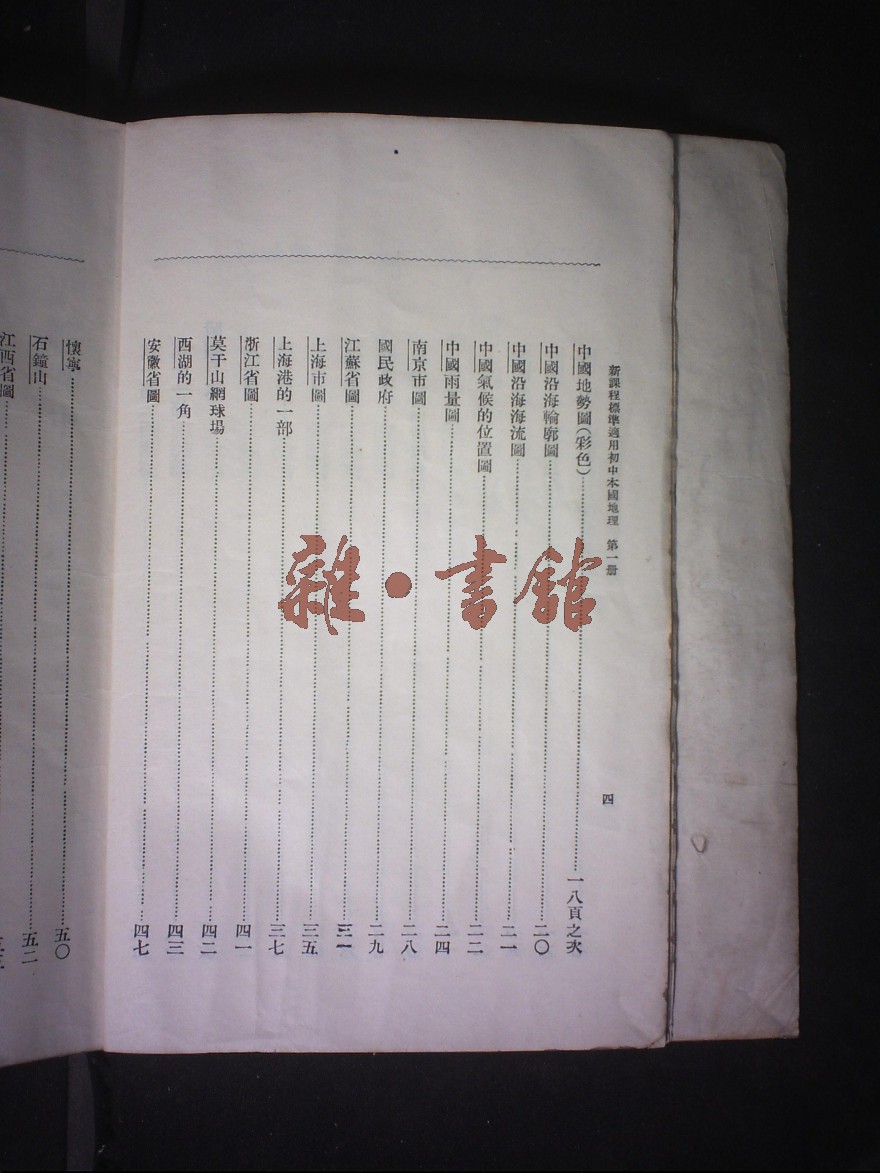 新課程標準適用初中本國地理　第一册
四
中國地勢圖(彩色)……一八頁之次
中國沿海輪廓圖……二〇
中國沿海海流圖……二一
中國氣候的位置圖……二二
中國雨量圖……二四
南京市圖……二八
國民政府……二九
江蘇省圖……三一
上海市圖……三五
上海港的一部……三七
浙江省圖……四一
莫干山網球場……四二
西湖的一角……四三
安徽省圖……四七
懷寧……五〇
石鐘山……五二
江西省圖……
雜·書館